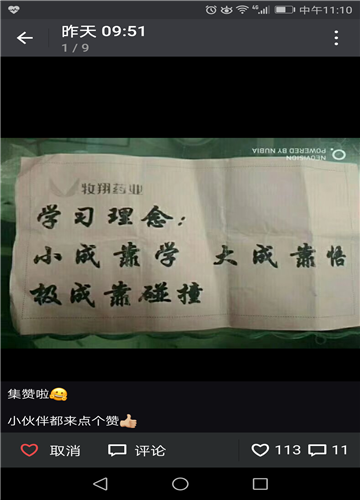 中午11:10
昨天 09:51
1 / 9
NEOVISION
POWERED BY NUBIA
牧翔药业
学习理念:
小成靠学 大成靠悟
极成靠碰撞
集赞啦🤗
小伙伴都来点个赞👍🏻
取消 评论 113 11